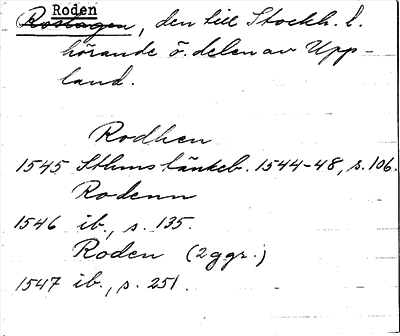 Roden
Roslagen, den till Stockh. l.
hörande ö. delen av Upp-
land.
Rodhen
1545 Sthms tänkeb. 1544-48, s. 106.
Rodenn
1546 ib., s. 135.
Roden (2 ggr.)
1547 ib., s. 251.